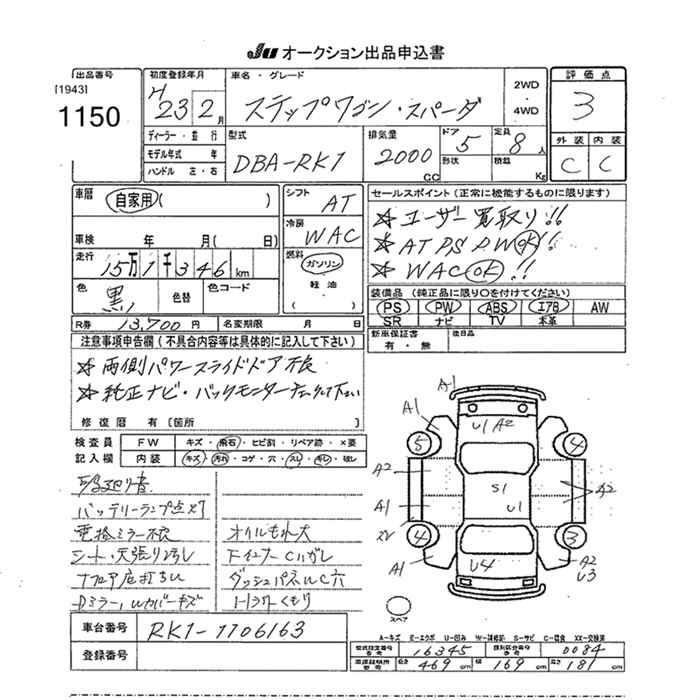 JU オークション出品申込書
出品番号
[1943]
1150
初度登録年月
H 23 2月
車名・グレード
ステップワゴン・スパーダ
2WD
・
4WD
評価点
3
外装 内装
C C
ディーラー・並行
モデル年式 年
ハンドル 左・右
型式
DBA-RK1
排気量
2000
CC
ドア
5
形状
定員
8人
積載
Kg
車歴
自家用( )
車検 年 月( 日)
走行
15万1千346km
色
黒
色替
色コード
シフト
AT
冷房
WAC
燃料
ガソリン
軽油
( )
R券 13,700円
名変期限 月 日
セールスポイント(正常に機能するものに限ります)
☆ユーザー買取り!!
☆AT PS PW OK!!
☆WAC OK!!
装備品(純正品に限り○を付けてください)
PS PW ABS エアB AW
SR ナビ TV 本革
新車保証書
有・無
後日品
注意事項申告欄(不具合内容等は具体的に記入して下さい)
☆両側パワースライドドア不良
☆純正ナビ・バックモニターチェックして下さい
修復歴 有〔箇所
検査員
記入欄
FW キズ・飛石・ヒビ割・リペア跡・×要
内装 キズ・汚れ・コゲ・穴・スレ・キレ・破レ
バッテリーランプ点灯
電格ミラー不良
シート・天張り汚れ
オイルもれ大
下インナーCハガレ
ダッシュパネルC穴
Dミラー,Wカバーキズ
A1
U1 A2
A1
5
4
A2
A1
A2
S1
U1
4
3
A1
U4
A2
U3
スペア
A-キズ E-エクボ U-凹み W-補修跡 S-サビ C-腐食 XX-交換済
車台番号 RK1-1106163
登録番号
型式指定番号 16345 類別区分番号 0084
車検証明所 長さ 469cm 幅 169cm 高さ 181cm